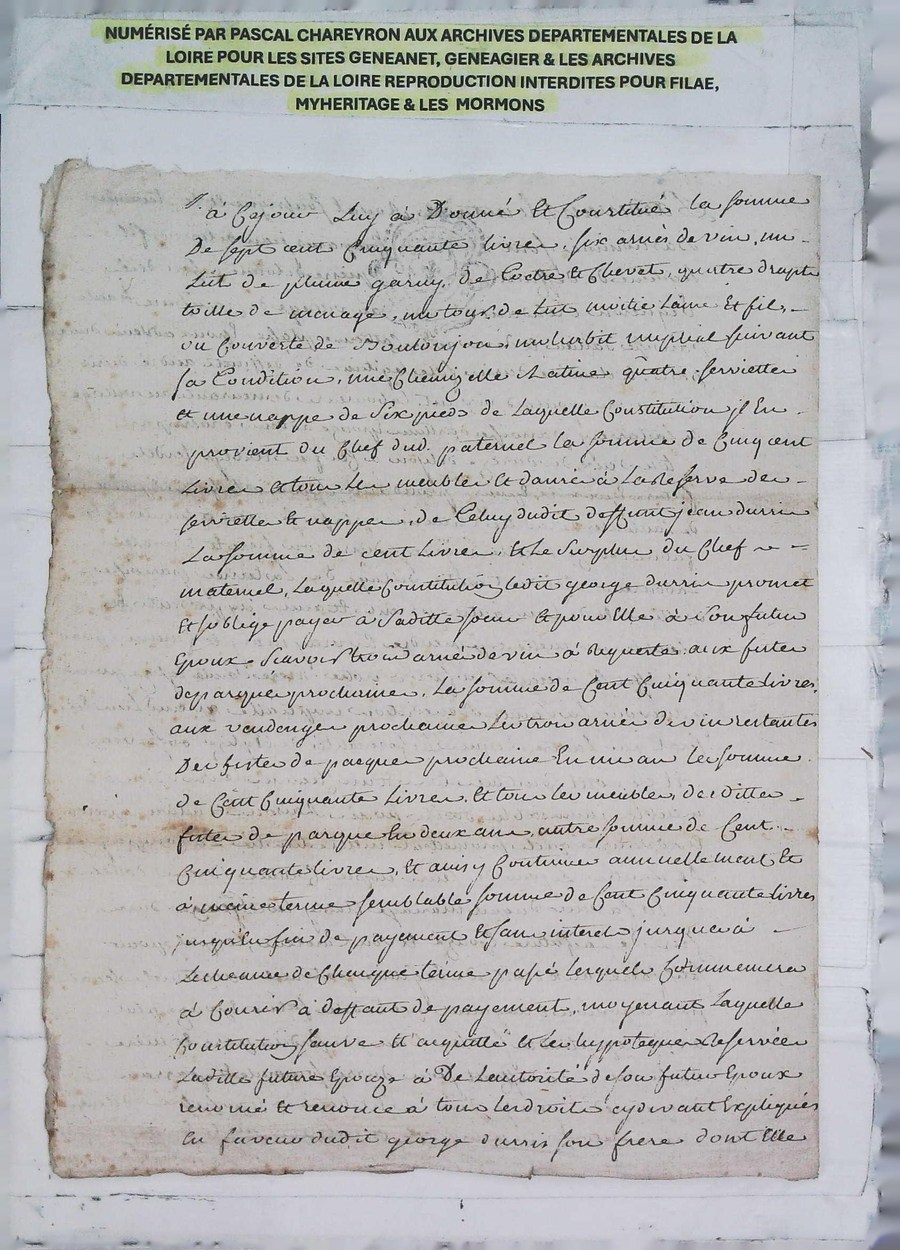 NUMÉRISÉ PAR PASCAL CHAREYRON AUX ARCHIVES DEPARTEMENTALES DE LA
LOIRE POUR LES SITES GENEANET, GENEAGIER & LES ARCHIVES
DEPARTEMENTALES DE LA LOIRE REPRODUCTION INTERDITES POUR FILAE,
MYHERITAGE & LES MORMONS
à Cejour Luy à Donné Et Constitué la somme
De sept cent Cinquante livres, six anées de vin, un
Lit de plume garny de Coetre et Chevet, quatre draps
toille de menage, un tour de Lit moitié Laine Et fil,
ou Couverte de un habit nuptial suivant
sa Condition, une Chemizelle Ratine quatre serviettes
et une nappe de Six pieds de Laquelle Constitution jl En
provient du Chef dud. paternel la somme de Cinq cent
Livres et tous Les meubles Et danrées à La Reserve des
serviettes et nappes, de Celuy dudit deffunt jean durris
La somme de cent Livres, et Le Surplus du Chef
maternel, Laquelle Constitution ledit george durris promet
Et soblige payer à Saditte soeur Et pour Elle à son futur
Epoux Scavoir trois anées de vin à Requeste aux festes
de pasques prochaines, La somme de Cent Cinquante Livres,
aux vendanges prochaines Les trois anées de vin restantes
Des festes de pacques prochaines En un an la somme
de Cent Cinquante Livres, Et tous les meubles, des dittes
festes de pasques En deux ans autre somme de Cent
Cinquante livres, Et ainsy Continuer annuellement Et
à même terme semblable somme de Cent Cinquante livres
jusqu'en fin de payement Et sans interets jusques à
Lecheance de Chaque terme passé lesquels Commenceront
à Courir à deffaut de payement, moyenant Laquelle
Constitution sauve Et acquitté et Les hyppoteques Reservées
Laditte future Epouze à De Lautorité de son futur Epoux
renoncé Et renonce à tous Les droits cydevant Expliqués
En faveur dudit george durris son frere dont Elle